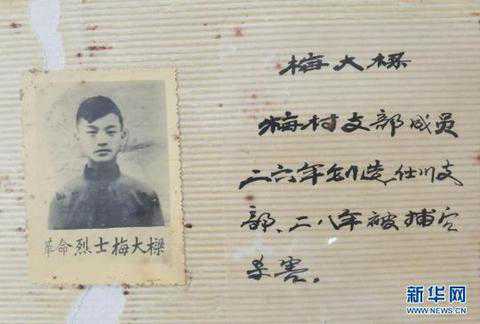 革命烈士梅大樑
梅大樑
梅村支部成员
二六年创造仕川支
部、二八年被捕
杀害。
新华网
WWW.NEWS.CN